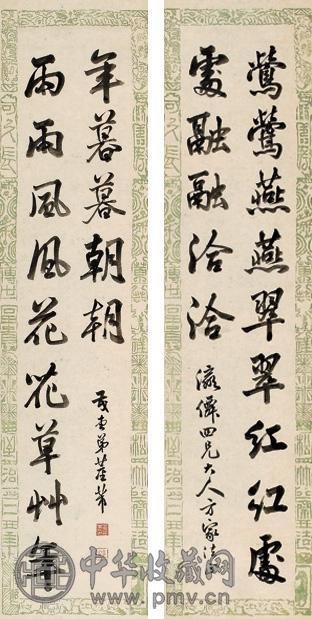 鶯鶯燕燕翠翠红红處
處融融洽洽
瀛僊四兄大人方家法
雨雨風風花花草艸年
年暮暮朝朝
弟
中华收藏网
www.pmv.cn